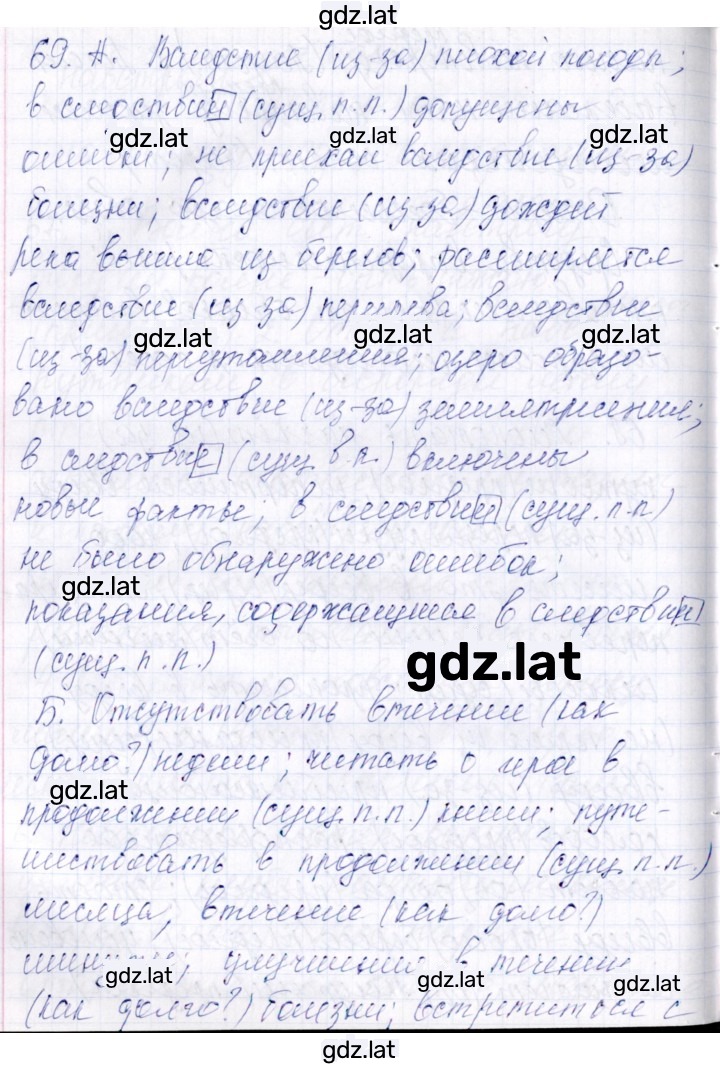 gdz.lat
69. А. Вследствие (из-за) плохой погоды;
gdz.lat
в следствии (сущ. п.п.) допущены
gdz.lat gdz.lat gdz.lat
ошибки; не приехал вследствие (из-за)
болезни; вследствие (из-за) дождей
река вышла из берегов; расширяется
вследствие (из-за) перелива; вследствие
gdz.lat gdz.lat gdz.lat
(из-за) переутомления; озеро образо-
вано вследствие (из-за) землетрясения;
в следствие (сущ. в.п.) включены
новые факты; в следствии (сущ. п.п.)
не было обнаружено ошибок;
gdz.lat
показания, содержащиеся в следствии
(сущ. п.п.)
gdz.lat
Б. Отсутствовать в течение (как
долго?) недели; читать о герое в
gdz.lat
продолжении (сущ. п.п.) книги; путе-
шествовать в продолжении (сущ. п.п.)
месяца; в течение (как долго?)
улучшения в течении
gdz.lat gdz.lat gdz.lat
(как долго?) болезни; встретиться с
gdz.lat